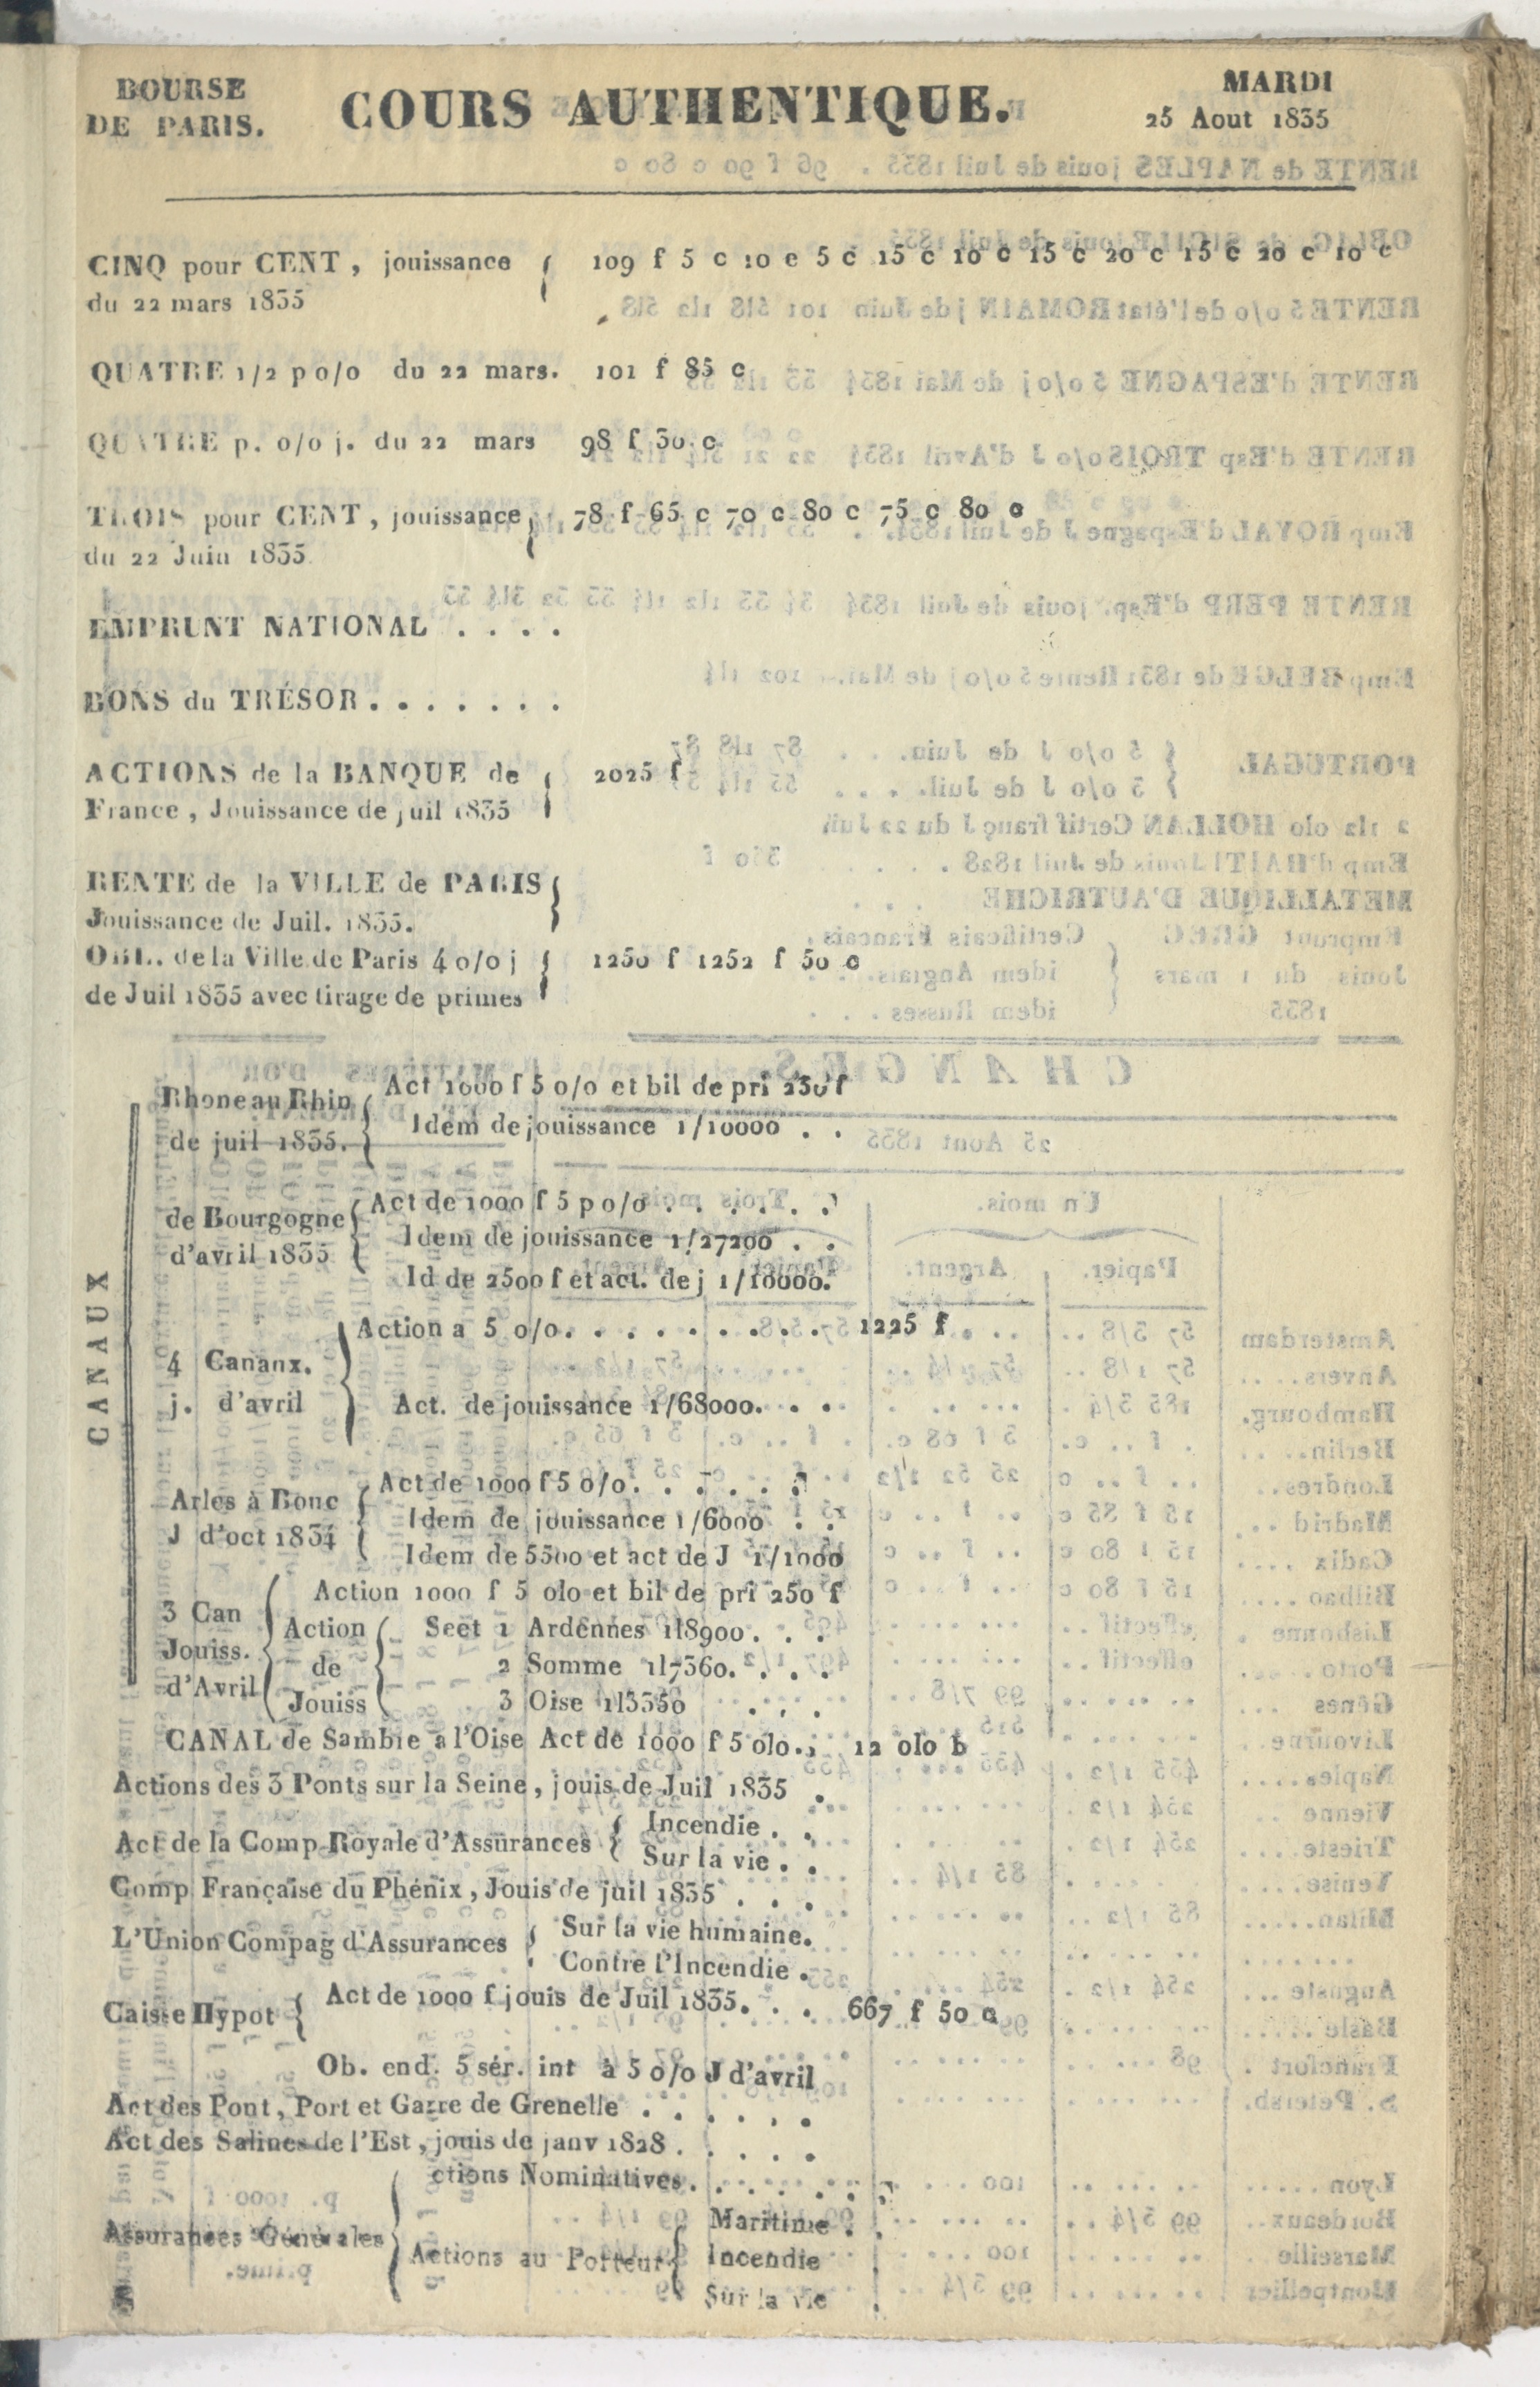 BOURSE
DE PARIS.
COURS AUTHENTIQUE.
MARDI
25 Aout 1835
CINQ pour CENT , jouissance { 109 f 5 c 10 c 5 c 15 c 10 c 15 c 20 c 15 c 20 c 10 c
du 22 mars 1835
QUATRE 1/2 p o/o du 22 mars. 101 f 85 c
QUATRE p. o/o j. du 22 mars 98 f 30 c
TROIS pour CENT , jouissance { 78 f 65 c 70 c 80 c 75 c 80 c
du 22 Juin 1835
EMPRUNT NATIONAL . . . .
BONS du TRÉSOR . . . . . . .
ACTIONS de la BANQUE de { 2025 f
France , Jouissance de juil 1835
RENTE de la VILLE de PARIS {
Jouissance de Juil. 1835.
OBL. de la Ville de Paris 4 o/o j { 1250 f 1252 f 50 c
de Juil 1835 avec tirage de primes
CANAUX
Rhone au Rhin { Act 1000 f 5 o/o et bil de pri 250 f
de juil 1835. Idem de jouissance 1/10000 . .
de Bourgogne { Act de 1000 f 5 p o/o . . . . . .
d'avril 1835 Idem de jouissance 1/27200 . .
Id de 2500 f et act. de j 1/10000.
Action a 5 o/o. . . . . . . . . . 1225 f
4 Cananx.
j. d'avril Act. de jouissance 1/68000. . . .
Arles à Bouc { Act de 1000 f 5 o/o. . . . . .
J d'oct 1834 Idem de jouissance 1/6000 . .
Idem de 5500 et act de J 1/1000
Action 1000 f 5 olo et bil de pri 250 f
3 Can Jouiss. d'Avril { Action de Jouiss { Sect 1 Ardennes 1l8900. . .
2 Somme 1l7360. . . .
3 Oise 1l3350 . . .
CANAL de Sambre a l'Oise Act de 1000 f 5 olo. . 12 olo b
Actions des 3 Ponts sur la Seine , jouis de Juil 1835 .
Act de la Comp Royale d'Assurances { Incendie . .
Sur la vie . .
Comp Française du Phénix , Jouis de juil 1835 . . .
L'Union Compag d'Assurances { Sur la vie humaine.
Contre l'Incendie .
Caisse Hypot { Act de 1000 f jouis de Juil 1835. . . 667 f 50 c
Ob. end. 5 sér. int à 5 o/o J d'avril
Act des Pont , Port et Garre de Grenelle . . . . . .
Act des Salines de l'Est , jouis de janv 1828 . . . . .
Assurances Générales { ctions Nominatives. . . . . . .
Actions au Porteur { Maritime . .
Incendie
Sur la vie .